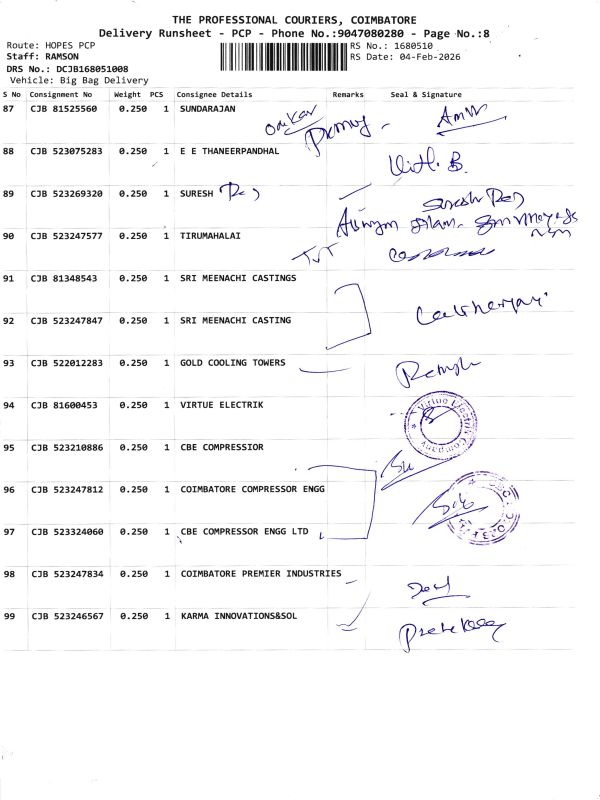 THE PROFESSIONAL COURIERS, COIMBATORE
Delivery Runsheet - PCP - Phone No.:9047080280 - Page No.:8
Route: HOPES PCP
RS No.: 1680510
Staff: RAMSON
RS Date: 04-Feb-2026
DRS No.: DCJB168051008
Vehicle: Big Bag Delivery
S No Consignment No Weight PCS Consignee Details Remarks Seal & Signature
87 CJB 81525560 0.250 1 SUNDARAJAN
88 CJB 523075283 0.250 1 E E THANEERPANDHAL
89 CJB 523269320 0.250 1 SURESH
Suresh
90 CJB 523247577 0.250 1 TIRUMAHALAI
91 CJB 81348543 0.250 1 SRI MEENACHI CASTINGS
92 CJB 523247847 0.250 1 SRI MEENACHI CASTING
93 CJB 522012283 0.250 1 GOLD COOLING TOWERS
94 CJB 81600453 0.250 1 VIRTUE ELECTRIK
95 CJB 523210886 0.250 1 CBE COMPRESSIOR
96 CJB 523247812 0.250 1 COIMBATORE COMPRESSOR ENGG
97 CJB 523324060 0.250 1 CBE COMPRESSOR ENGG LTD
98 CJB 523247834 0.250 1 COIMBATORE PREMIER INDUSTRIES
99 CJB 523246567 0.250 1 KARMA INNOVATIONS&SOL